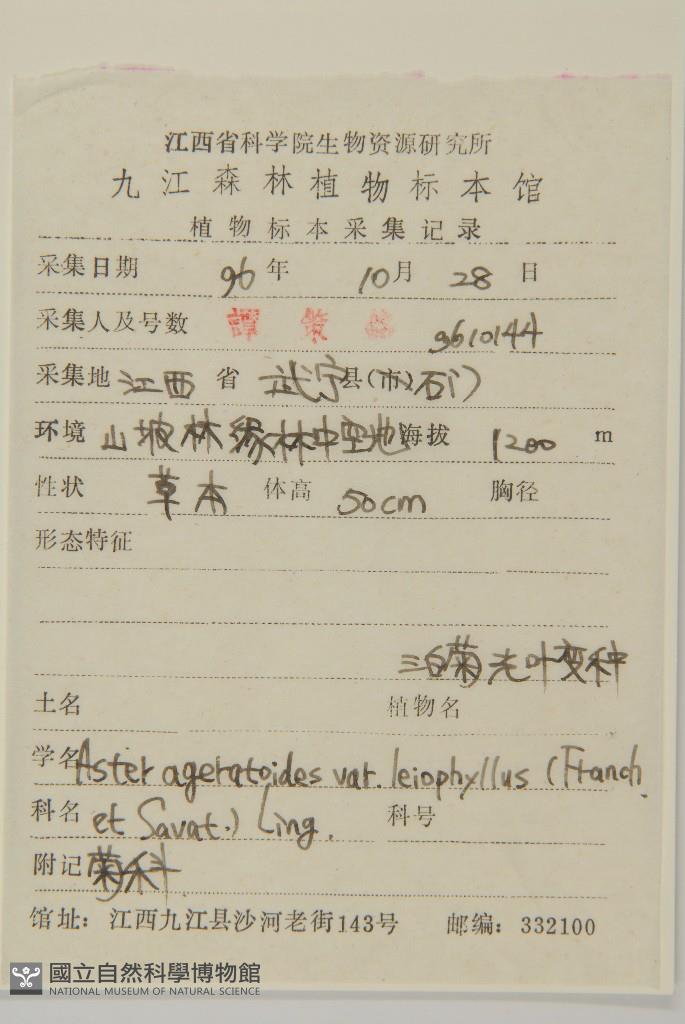 江西省科学院生物资源研究所
九江森林植物标本馆
植物标本采集记录
采集日期 96 年 10 月 28 日
采集人及号数 譚策銘 9610144
采集地 江西 省 武宁 县(市) 石门
环境 山坡林缘林中空地 海拔 1200 m
性状 草本 体高 50cm 胸径
形态特征
三白菊光叶变种
土名 植物名
学名 Aster ageratoides var. leiophyllus (Franch.
科名 et Savat.) Ling. 科号
附记 菊科
馆址：江西九江县沙河老街143号 邮编：332100
國立自然科學博物館
NATIONAL MUSEUM OF NATURAL SCIENCE